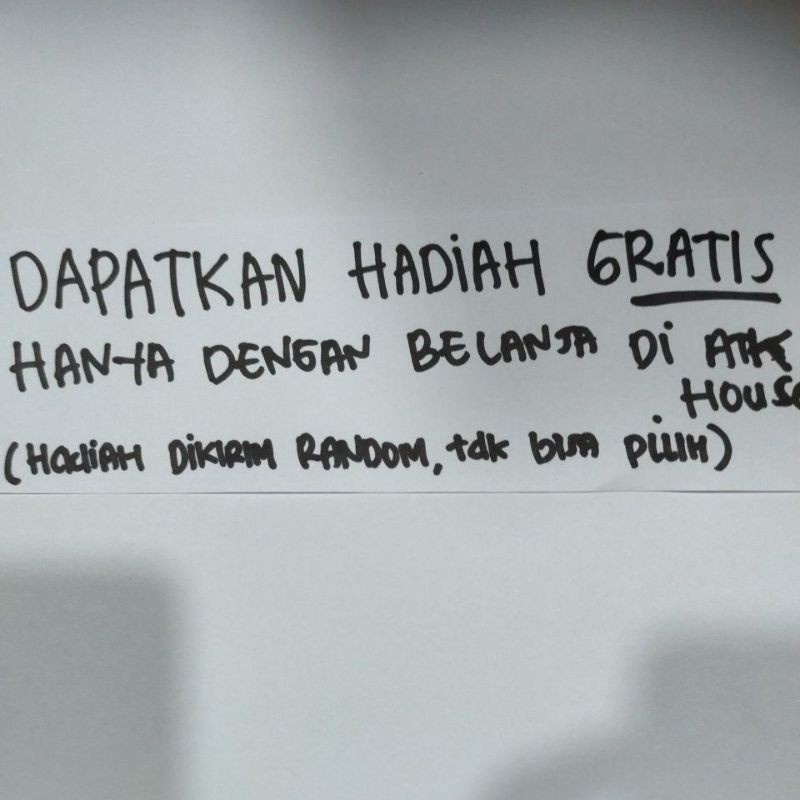 DAPATKAN HADiAH GRATIS
HANYA DENGAN BELANJA Di ATK
HOUSE
(HadiAH DIKIRIM RANDOM, tdk bisa piLiH)